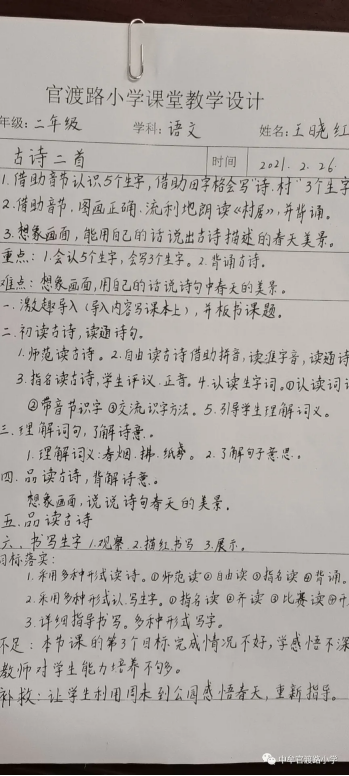 官渡路小学课堂教学设计
年级：二年级 学科：语文 姓名：王晓红
古诗二首 时间 2021.2.26
1.借助音节认识5个生字，借助田字格会写“诗、村”3个生字
2.借助音节、图画正确、流利地朗读《村居》，并背诵。
3.想象画面，能用自己的话说出古诗描述的春天美景。
重点：1.会认5个生字，会写3个生字。2.背诵古诗。
难点：想象画面，用自己的话说诗句中春天的美景。
一.激趣导入（导入内容写课本上），并板书课题。
二.初读古诗，读通诗句。
1.师范读古诗。2.自由读古诗借助拼音，读准字音，读通诗
3.指名读古诗，学生评议、正音。4.认读生字词。①认读词语
②带音节识字③交流识字方法。5.引导学生理解词义。
三.理解词句，了解诗意。
1.理解词义：春烟、拂、纸鸢。2.了解句子意思。
四.品读古诗，背解诗意。
想象画面，说说诗句春天的美景。
五.品读古诗
六.书写生字 1.观察 2.描红书写 3.展示。
目标落实：
1.采用多种形式读诗。①师范读②自由读③指名读④背诵。
2.采用多种形式认、写生字。①指名读②齐读③比赛读④开
3.详细指导书写。多种形式写字。
不足：本节课的第3个目标完成情况不好，学感悟不深
教师对学生能力培养不够多。
补救：让学生利用周末到公园感悟春天，重新指导。
中牟官渡路小学